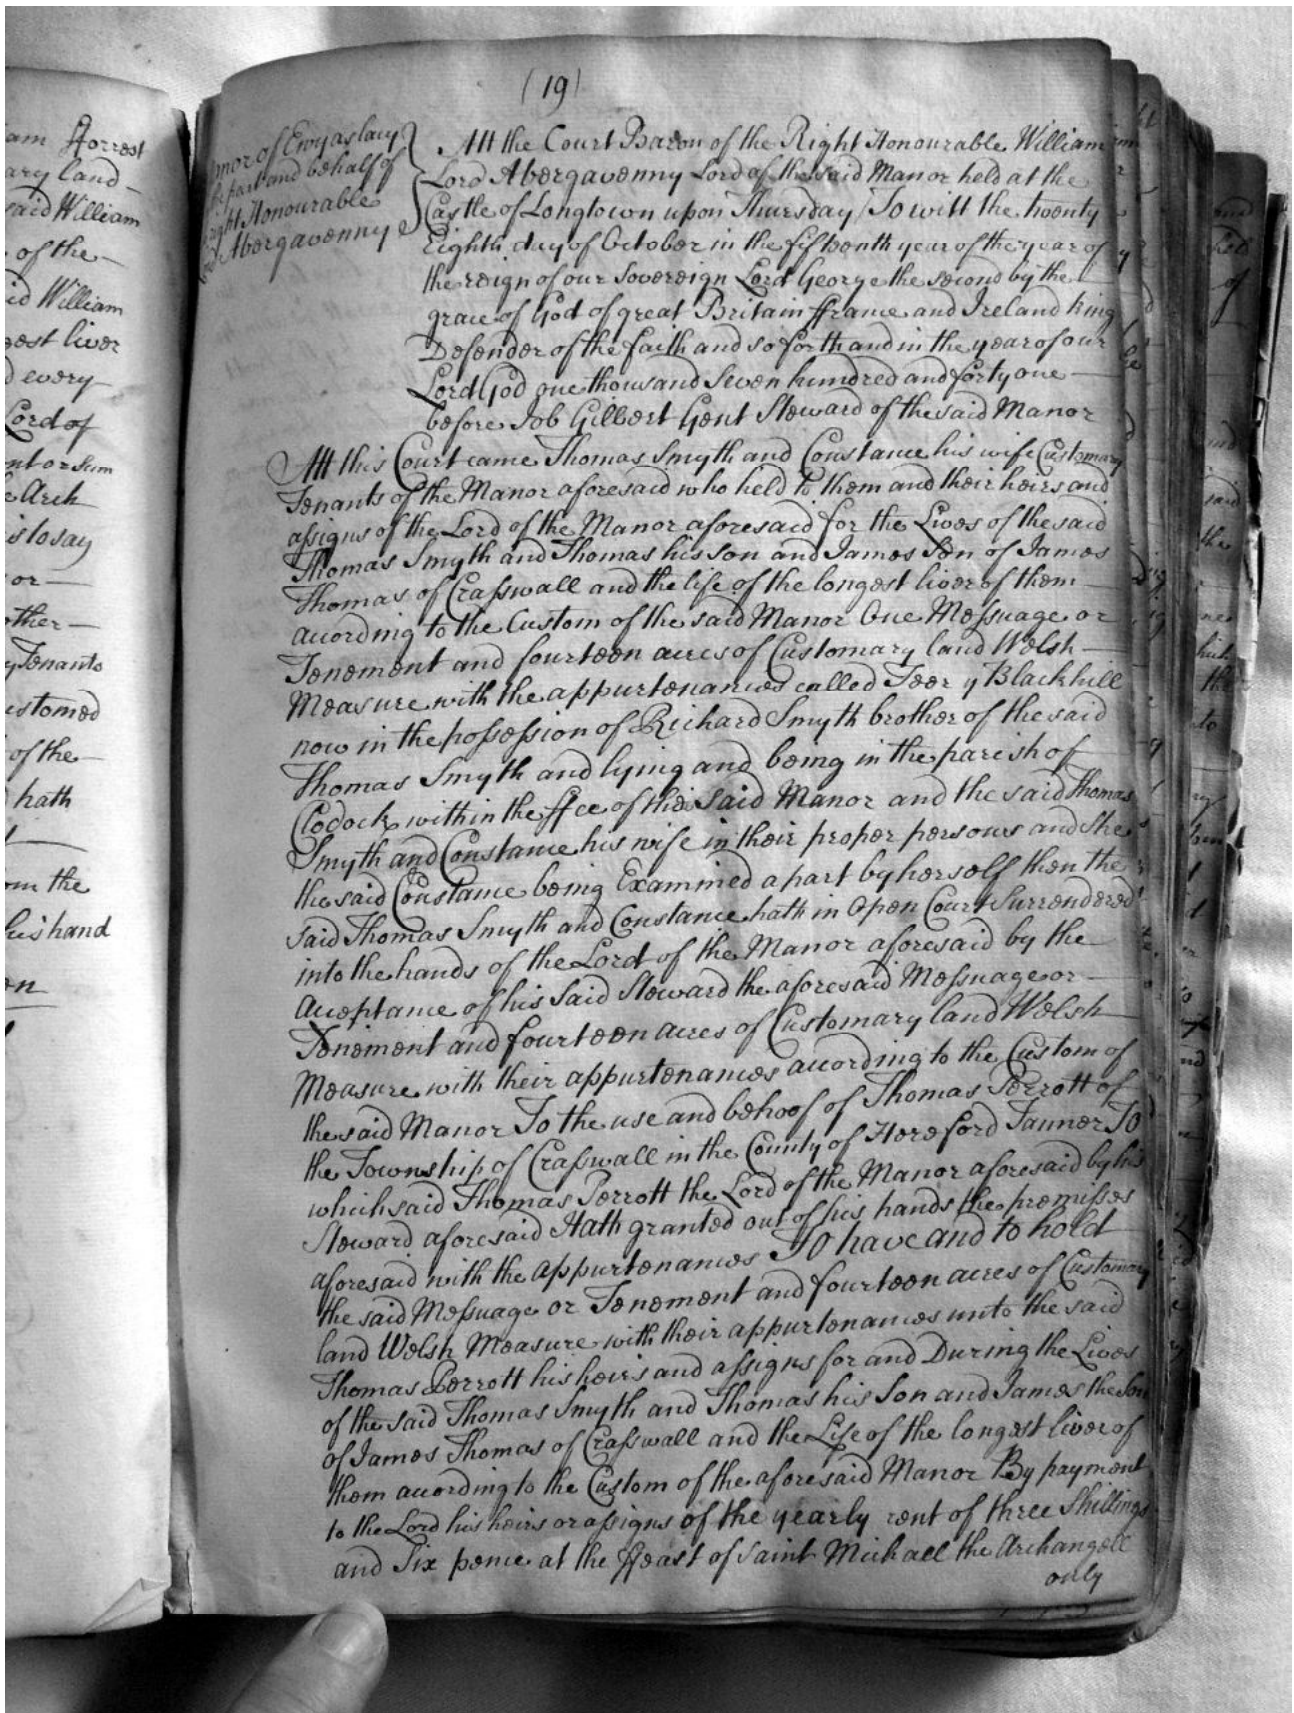 (19)
onor of Ewyas lacy
part and behalf of
right Honourable
Abergavenny
Att the Court Baron of the Right Honourable William
Lord Abergavenny Lord of the said Manor held at the
Castle of Longtown upon Thursday To witt the twenty
Eighth day of October in the fifteenth year of the year of
the reign of our Sovereign Lord George the second by the
grace of God of great Britain ffrance and Ireland King
Defender of the faith and so forth and in the year of our
Lord God one thousand Seven hundred and forty one
before Job Gilbert Gent Steward of the said Manor
Att this Court came Thomas Smyth and Constance his wife Customary
Tenants of the Manor aforesaid who held to them and their heirs and
assigns of the Lord of the Manor aforesaid for the Lives of the said
Thomas Smyth and Thomas his son and James Son of James
Thomas of Crasswall and the life of the longest liver of them
according to the Custom of the said Manor One Messuage or
Tenement and fourteen acres of Customary land Welsh
Measure with the appurtenances called Teer y Blackhill
now in the possession of Richard Smyth brother of the said
Thomas Smyth and lying and being in the parish of
Clodock within the ffee of the said Manor and the said Thomas
Smyth and Constance his wife in their proper persons and She
the said Constance being Examined apart by herself then the
said Thomas Smyth and Constance hath in Open Court Surrendered
into the hands of the Lord of the Manor aforesaid by the
acceptance of his Said Steward the aforesaid Messuage or
Tenement and fourteen acres of Customary land Welsh
Measure with their appurtenances according to the Custom of
the said Manor To the use and behoof of Thomas Perrott of
the Township of Crasswall in the County of Hereford Tanner To
which said Thomas Perrott the Lord of the Manor aforesaid by his
Steward aforesaid Hath granted out of his hands the premisses
aforesaid with the appurtenances To have and to hold
the said Messuage or Tenement and fourteen acres of Customary
land Welsh Measure with their appurtenances unto the said
Thomas Perrott his heirs and assigns for and During the Lives
of the said Thomas Smyth and Thomas his Son and James the Son
of James Thomas of Crasswall and the Life of the longest liver of
them according to the Custom of the aforesaid Manor By payment
to the Lord his heirs or assigns of the yearly rent of three Shillings
and Six pence at the ffeast of Saint Michael the Archangell
only